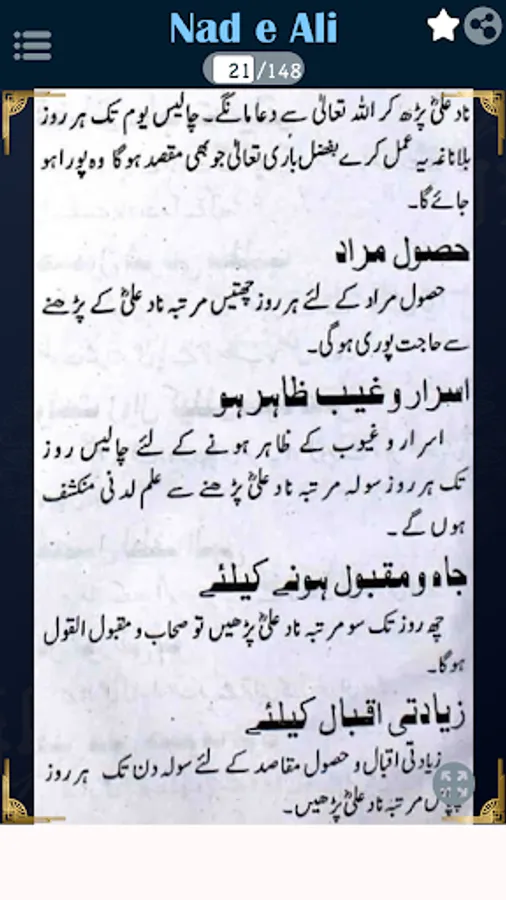 Nad e Ali
21/148
ناد علیؓ پڑھ کر اللہ تعالیٰ سے دعا مانگے۔ چالیس یوم تک ہر روز
بلاناغہ یہ عمل کرے بفضل باری تعالیٰ جو بھی مقصد ہوگا وہ پورا ہو
جائے گا۔
حصول مراد
حصول مراد کے لئے ہر روز چھتیس مرتبہ ناد علیؓ کے پڑھنے
سے حاجت پوری ہوگی۔
اسرار و غیب ظاہر ہو
اسرار و غیوب کے ظاہر ہونے کے لئے چالیس روز
تک ہر روز سولہ مرتبہ ناد علیؓ پڑھنے سے علم لدنی منکشف
ہوں گے۔
جاہ و مقبول ہونے کیلئے
چھ روز تک سو مرتبہ ناد علیؓ پڑھیں تو صحاب و مقبول القول
ہوگا۔
زیادتی اقبال کیلئے
زیادتی اقبال و حصول مقاصد کے لئے سولہ دن تک ہر روز
مرتبہ ناد علیؓ پڑھیں۔